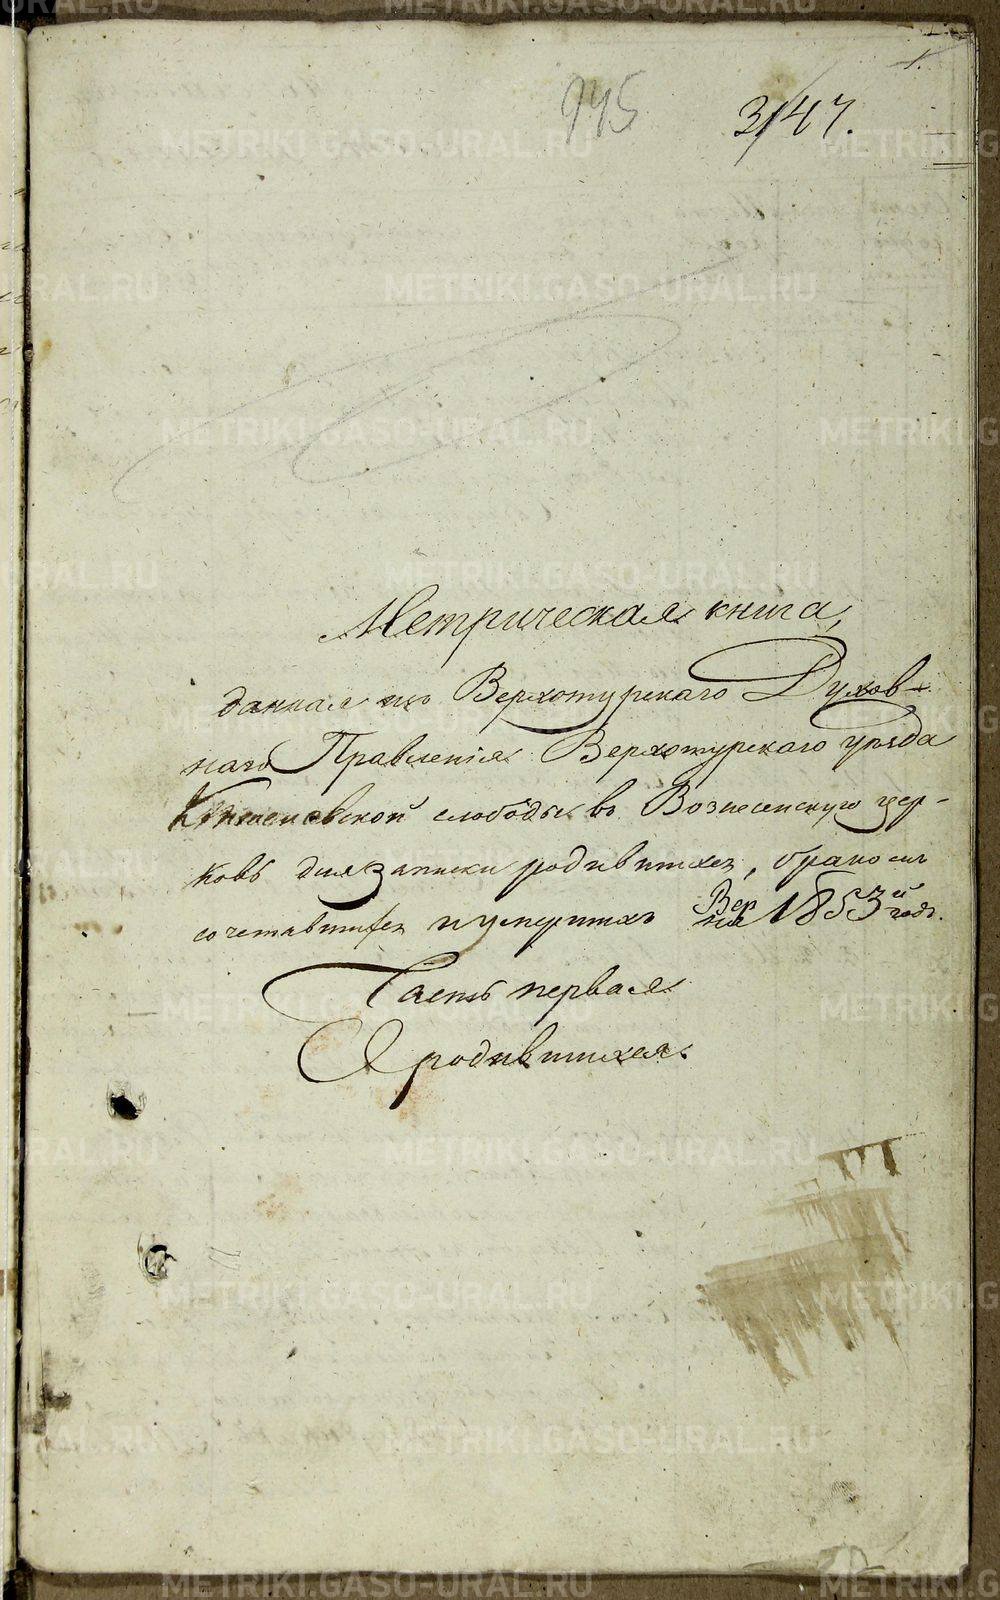 1.
945
3/47.
Метрическая книга,
данная изъ Верхотурскаго Духов-
наго Правленія Верхотурскаго уѣзда
слободы въ Вознесенскую цер-
ковь для записки родившихся, бракомъ
сочетавшихся и умершихъ на 1853й годъ.
Часть первая
О родившихся.
METRIKI.GASO-URAL.RU